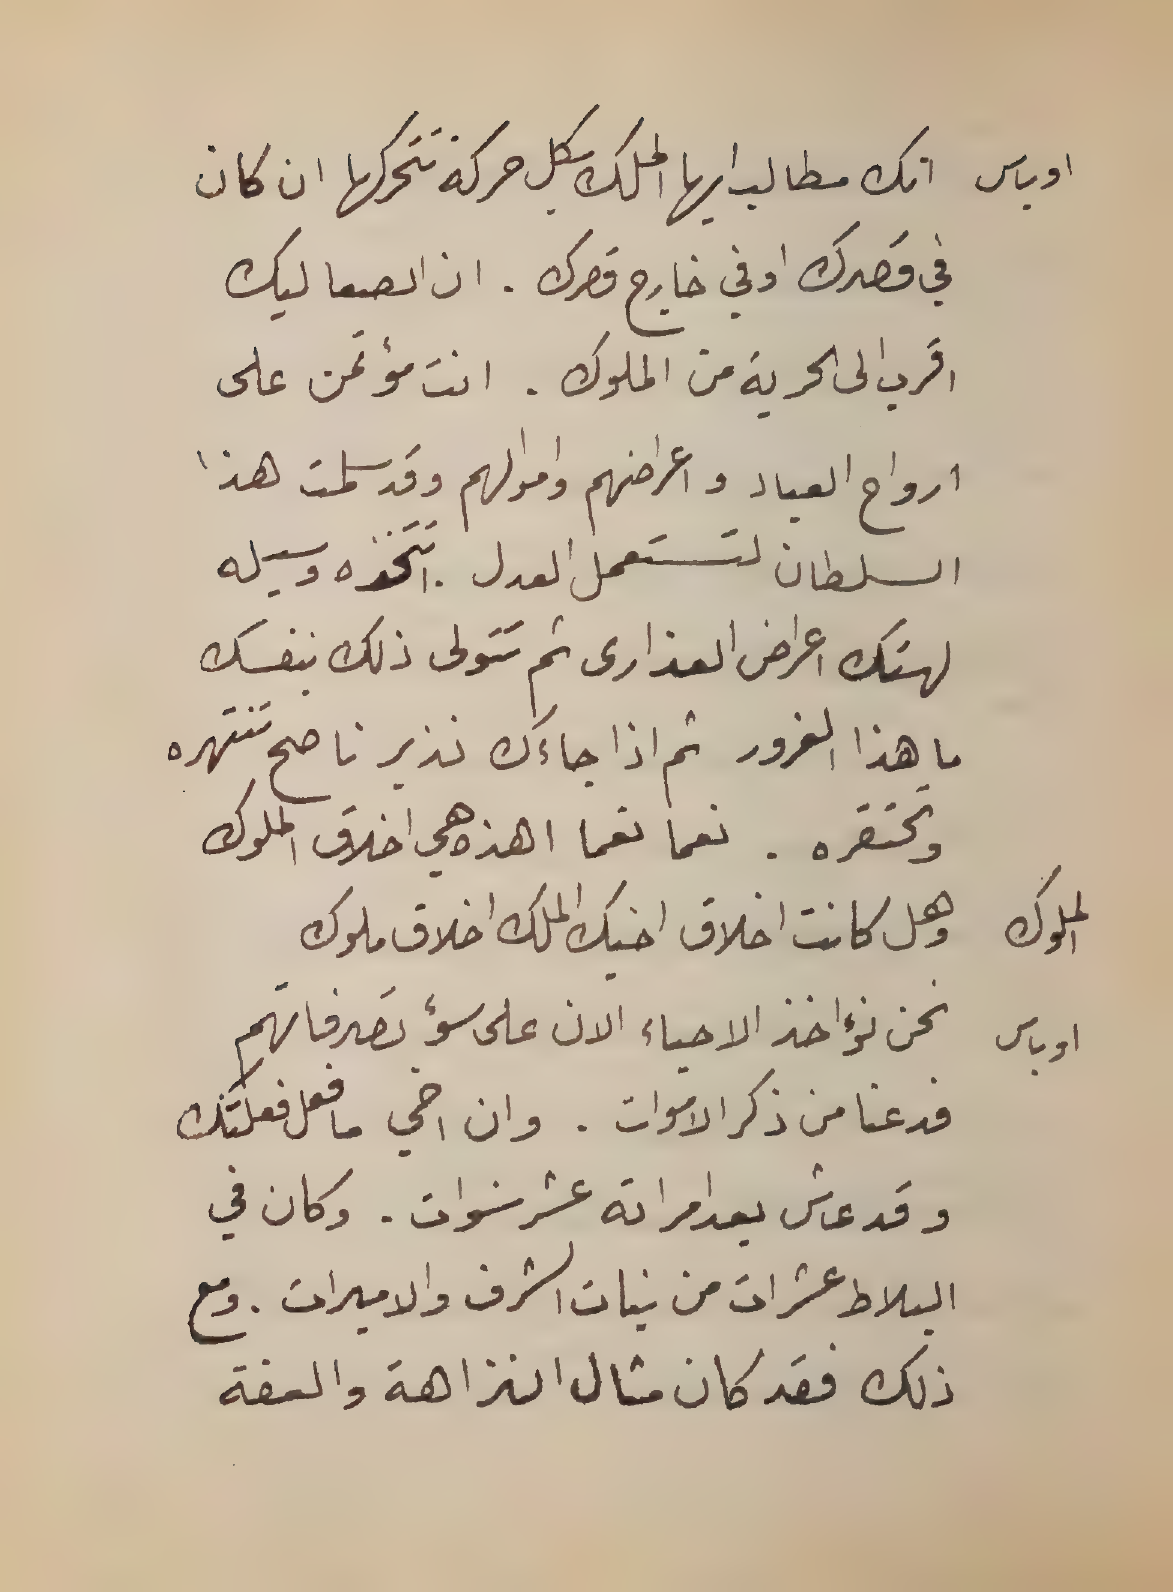 اوباس انك مطالب ايها الملك بكل حركة تتحركها ان كان
في قصرك او في خارج قصرك . ان الصعاليك
اقرب الى الحرية من الملوك . انت مؤتمن على
ارواح العباد و اعراضهم واموالهم وقد سلمت هذا
السلطان لتستعمل العدل . اتتخذه وسيله
لهتك اعراض العذارى ثم تتولى ذلك بنفسك
ما هذا الغرور ثم اذا جاءك نذير ناصح تنتهره
وتحتقره . نعما نعما اهذه هي اخلاق الملوك
الملوك وهل كانت اخلاق اخيك الملك اخلاق ملوك
اوباس نحن نؤاخذ الاحياء الان على سوء تصرفاتهم
فدعنا من ذكر الاموات . وان اخي ما فعل فعلتك
و قد عاش بعد امراته عشر سنوات . وكان في
البلاط عشرات من بنات الشرف والاميرات . ومع
ذلك فقد كان مثال النزاهة والعفة